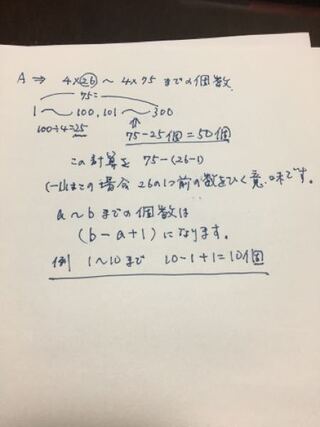 A ⇒ 4×26 〜 4×75 までの個数
75=
1 〜 100, 101 〜 300
100÷4=25
75−25個=50個
この計算を 75−(26−1)
(−1)はこの場合 26の1つ前の数をひく意味です。
a〜bまでの個数は
(b−a+1)になります。
例 1〜10まで 10−1+1=10個